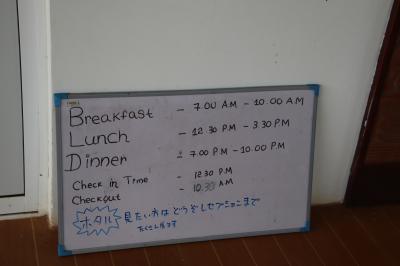 Breakfast - 7.00 A.M - 10.00 A.M
Lunch - 12.30 P.M - 3.30 P.M
Dinner - 7.00 P.M - 10.00 P.M
Check in Time - 12.30 P.M
Checkout - 10.30 A.M
ホタル 見たい方は どうぞ レセプションまで